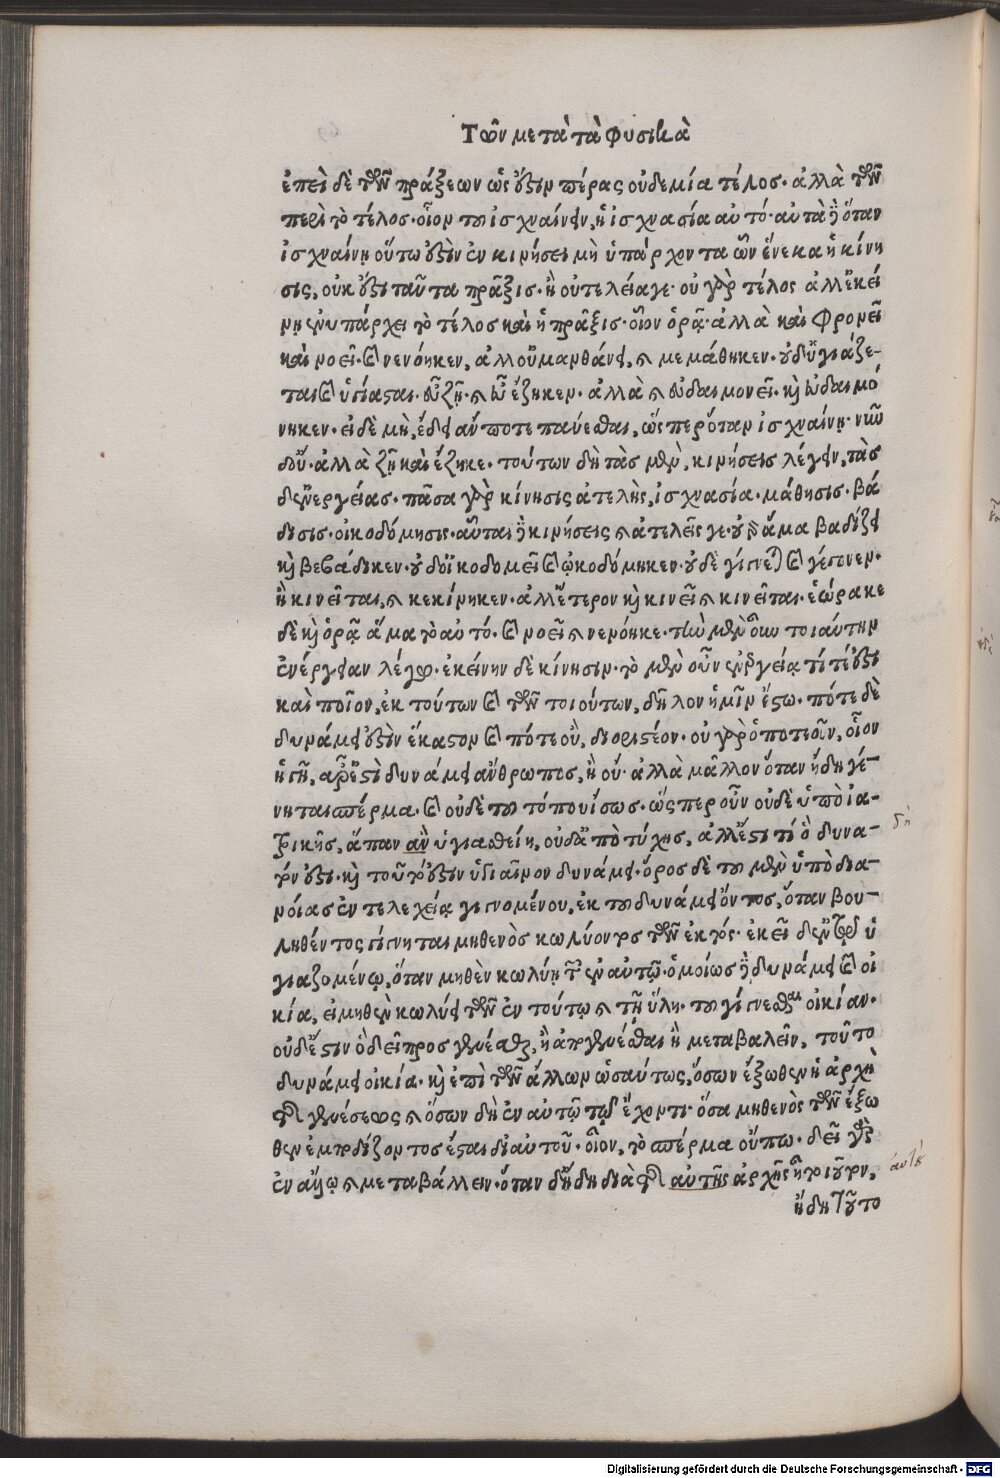 Τῶν μετὰ τὰ φυσικὰ
ἐπεὶ δὲ τῶν πράξεων ὧν ἔστιν πέρας οὐδεμία τέλος· ἀλλὰ τῶν
περὶ τὸ τέλος· οἷον τοῦ ἰσχναίνειν, ἡ ἰσχνασία αὐτό· αὐτὰ δὲ ὅταν
ἰσχναίνῃ οὕτω ἐστὶν ἐν κινήσει μὴ ὑπάρχοντα ὧν ἕνεκα ἡ κίνη
σις, οὐκ ἔστι ταῦτα πρᾶξις· ἢ οὐ τελεία γε· οὐ γὰρ τέλος ἀλλ' ἐκεί
νῃ ἐνυπάρχει τὸ τέλος καὶ ἡ πρᾶξις· οἷον ὁρᾷ· ἀλλὰ καὶ φρονεῖ
καὶ νοεῖ· καὶ νενόηκεν, ἀλλ' οὐ μανθάνει, καὶ μεμάθηκεν· οὐδ' ὑγιάζε-
ται καὶ ὑγίασται· εὖ ζῇ· καὶ εὖ ἔζηκεν· ἀλλὰ καὶ εὐδαιμονεῖ· καὶ εὐδαιμό
νηκεν· εἰ δὲ μὴ, ἔδει ἄν ποτε παύεσθαι, ὥσπερ ὅταν ἰσχναίνῃ· νῦν
δ' οὔ· ἀλλὰ ζῇ καὶ ἔζηκε· τούτων δὴ τὰς μὲν, κινήσεις λέγειν, τὰς
δ' ἐνεργείας· πᾶσα γὰρ κίνησις ἀτελὴς, ἰσχνασία· μάθησις· βά
δισις· οἰκοδόμησις· αὗται δὲ κινήσεις καὶ ἀτελεῖς γε· οὐ γὰρ ἅμα βαδίζει
καὶ βεβάδικεν· οὐδ' οἰκοδομεῖ καὶ ᾠκοδόμηκεν· οὐδὲ γίγνεται καὶ γέγονεν·
ἢ κινεῖται, καὶ κεκίνηκεν· ἀλλ' ἕτερον καὶ κινεῖ καὶ κινεῖται· ἑώρακε
δὲ καὶ ὁρᾷ ἅμα τὸ αὐτό· καὶ νοεῖ καὶ νενόηκε· τὴν μὲν οὖν τοιαύτην
ἐνέργειαν λέγω· ἐκείνην δὲ κίνησιν· τὸ μὲν οὖν ἐνεργείᾳ τί τέ ἐστι
καὶ ποῖον, ἐκ τούτων καὶ τῶν τοιούτων, δῆλον ἡμῖν ἔστω· πότε δὲ
δυνάμει ἐστὶν ἕκαστον καὶ πότε οὒ, διοριστέον· οὐ γὰρ ὁποτεοῦν, οἷον
ἡ γῆ, ἆρ' ἐστὶ δυνάμει ἄνθρωπος, ἢ οὔ· ἀλλὰ μᾶλλον ὅταν ἤδη γέ-
νηται σπέρμα· καὶ οὐδὲ τοῦτό που ἴσως· ὥσπερ οὖν οὐδὲ ὑπὸ ἰα-
τρικῆς, ἅπαν ἂν ὑγιασθείη, οὐδ' ἀπὸ τύχης, ἀλλ' ἔστι τί ὃ δυνα-
τόν ἐστι· καὶ τοῦτ' ἐστὶν ὑγιαῖνον δυνάμει· ὅρος δὲ τοῦ μὲν ὑπὸ δια-
νοίας ἐντελεχείᾳ γιγνομένου, ἐκ τοῦ δυνάμει ὄντος, ὅταν βου-
ληθέντος γίγνηται μηθενὸς κωλύοντος τῶν ἐκτός· ἐκεῖ δ' ἐν τῷ ὑ
γιαζομένῳ, ὅταν μηθὲν κωλύῃ τῶν ἐν αὐτῷ· ὁμοίως δὲ δυνάμει καὶ οἰ
κία, εἰ μηθὲν κωλύει τῶν ἐν τούτῳ καὶ τῇ ὕλῃ· τοῦ γίγνεσθαι οἰκίαν·
οὐδ' ἔστιν ὃ δεῖ προσγενέσθαι, ἢ ἀπογενέσθαι ἢ μεταβαλεῖν, τοῦτο
δυνάμει οἰκία· καὶ ἐπὶ τῶν ἄλλων ὡσαύτως, ὅσων ἔξωθεν ἡ ἀρχὴ
τῆς γενέσεως καὶ ὅσων δὴ ἐν αὐτῷ τῷ ἔχοντι· ὅσα μηθενὸς τῶν ἔξω
θεν ἐμποδίζοντος ἔσται δι' αὐτοῦ· οἷον, τὸ σπέρμα οὔπω· δεῖ γὰρ
ἐν ἄλλῳ καὶ μεταβάλλειν· ὅταν δ' ἤδη διὰ τῆς αὐτῆς ἀρχῆς ᾖ τοιοῦτον,
ἤδη τοῦτο
δὴ
αὐτοῦ
Digitalisierung gefördert durch die Deutsche Forschungsgemeinschaft - DFG